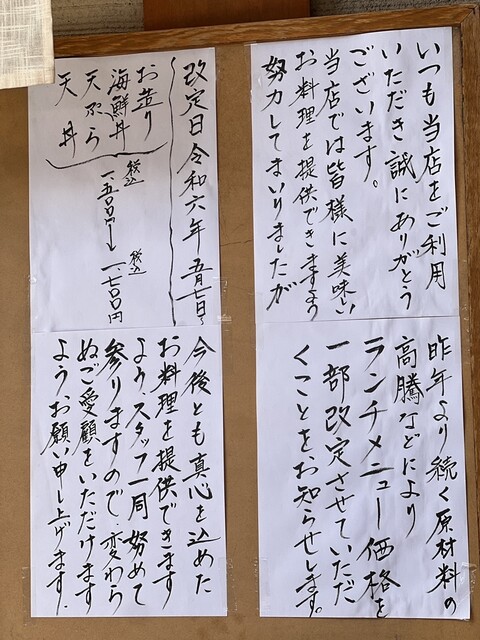 いつも当店をご利用
いただき誠にありがとう
ございます。
当店では皆様に美味しい
お料理を提供できますよう
努力してまいりましたが
昨年より続く原材料の
高騰などにより
ランチメニュー価格を
一部改定させていただ
くことをお知らせします。
改定日令和六年 五月七日〜
お造り
海鮮丼
天ぷら
天丼
税込 一、五〇〇円→税込 一、七〇〇円
今後とも真心を込めた
お料理を提供できます
ようスタッフ一同努めて
参りますので、変わら
ぬご愛顧をいただけます
ようお願い申し上げます.